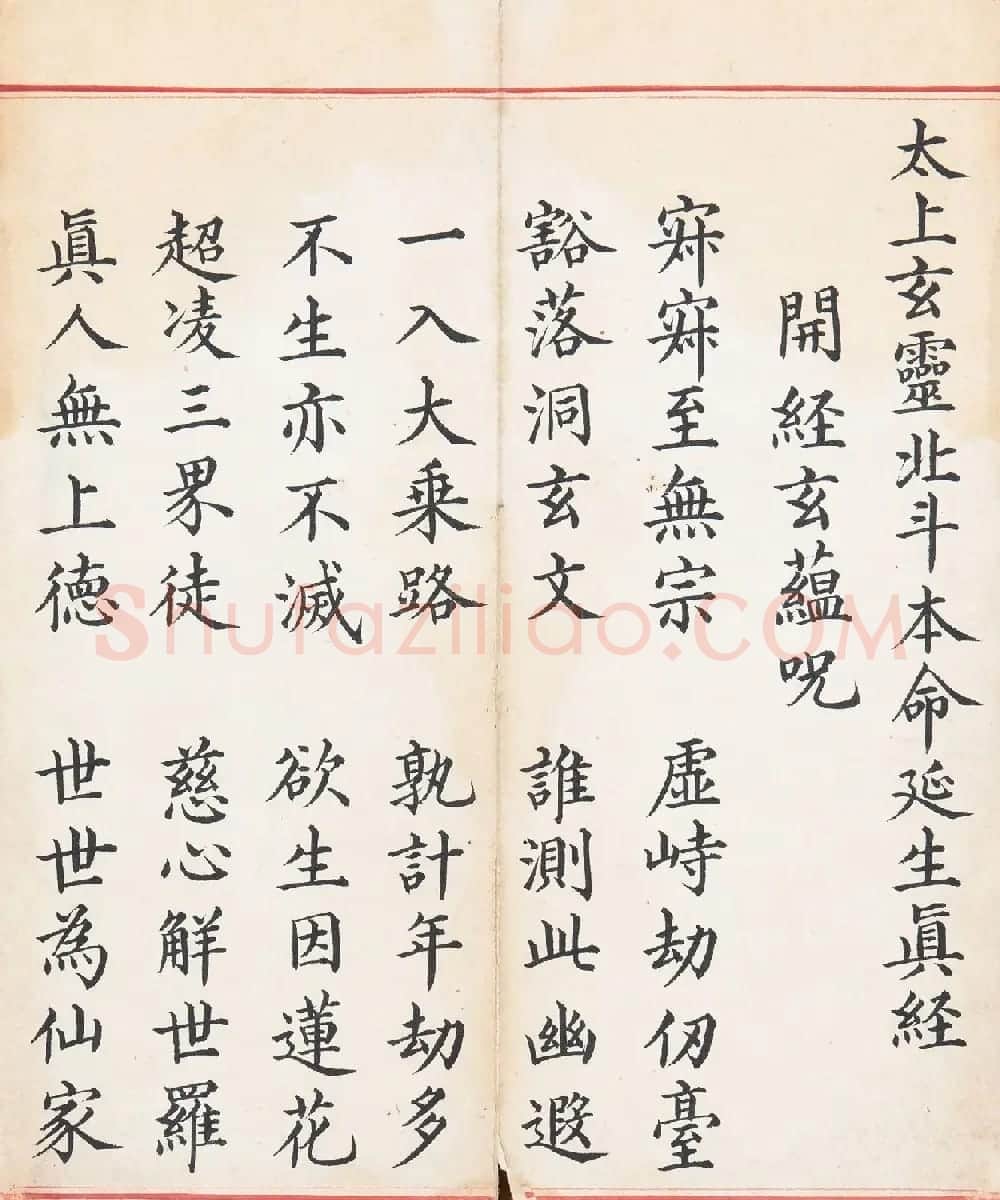 太上玄靈北斗本命延生眞経
開経玄蘊呪
寂寂至無宗 虛峙劫仞臺
豁落洞玄文 誰測此幽遐
一入大乗路 孰計年劫多
不生亦不滅 欲生因蓮花
超凌三界徒 慈心解世羅
眞人無上徳 世世為仙家
Shufaziliao.COM